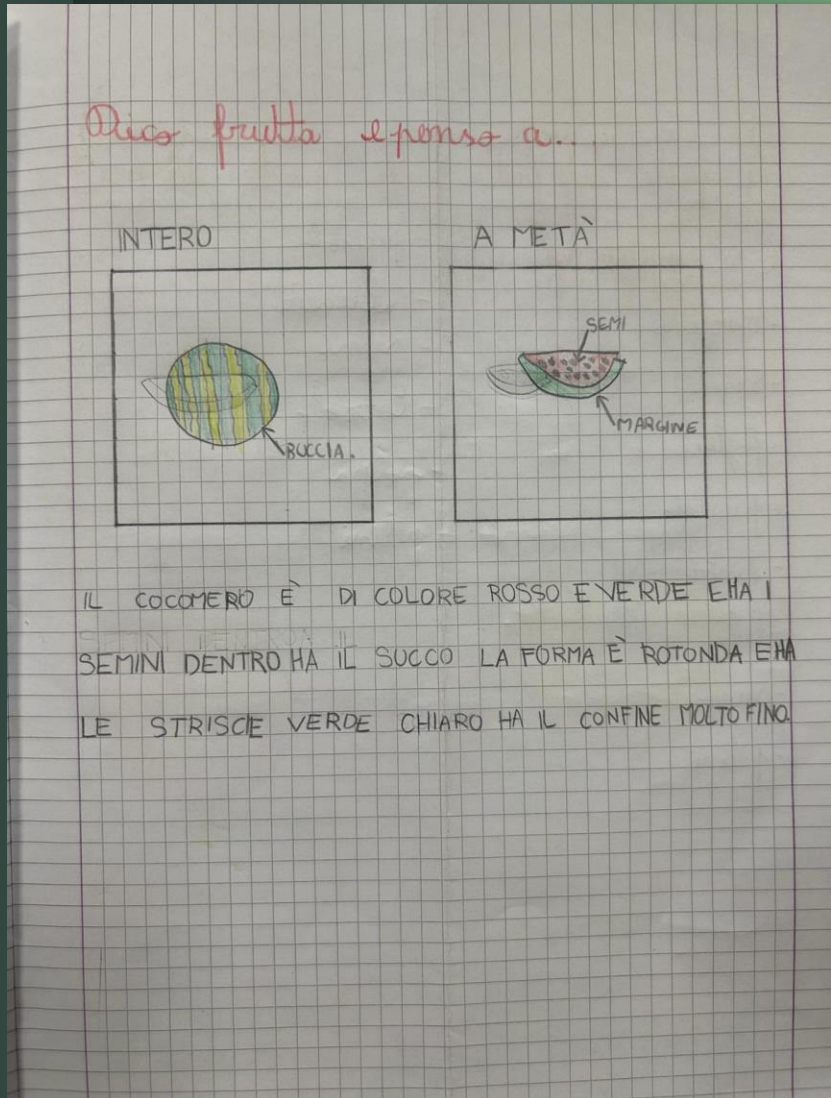 Dico frutta e penso a...
INTERO
A METÀ
SEMI
MARGINE
BUCCIA.
IL COCOMERO È DI COLORE ROSSO E VERDE EHA I
SEMINI DENTRO HA IL SUCCO LA FORMA È ROTONDA EHA
LE STRISCIE VERDE CHIARO HA IL CONFINE MOLTO FINO.